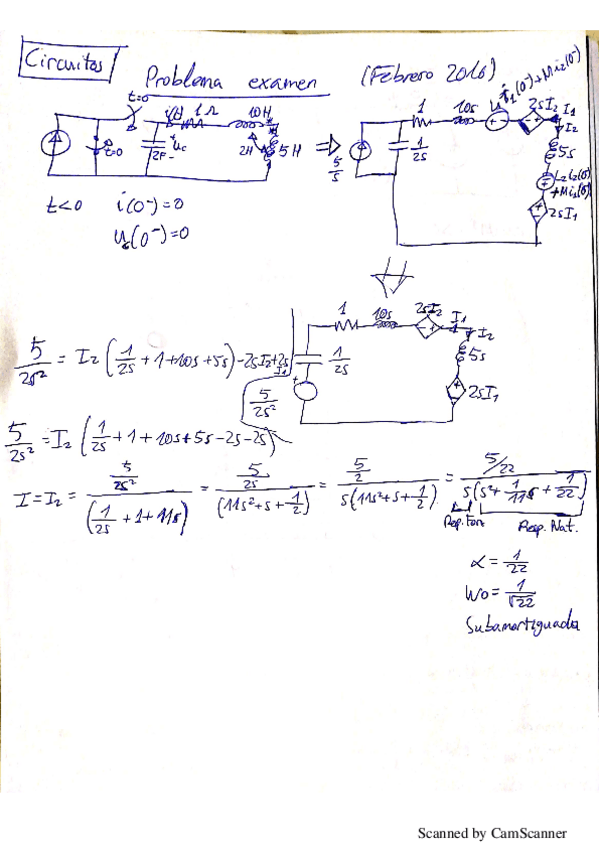 Circuitos
Problema examen (Febrero 2016)
t=0 i(t) 1Ω 10H
t=0 2F uc 2H 5H
5/s 1/2s 1 10s 2sI2 I1 I2
5s
2sI1
t<0 i(0⁻)=0
uc(0⁻)=0
1 10s 2sI2 I1 I2
1/2s 5s
5/2s² 2sI1
5/2s² = I2 (1/2s + 1 + 10s + 5s) - 2sI2 + 2s I1
5/2s² = I2 (1/2s + 1 + 10s + 5s - 2s - 2s)
I = I2 = 5/2s² / (1/2s + 1 + 11s) = 5/2s / (11s² + s + 1/2) = 5/2 / s(11s² + s + 1/2) = 5/22 / s(s² + 1/11 s + 1/22)
Rep. For. Resp. Nat.
α = 1/22
Wo = 1/√22
Subamortiguada
Scanned by CamScanner